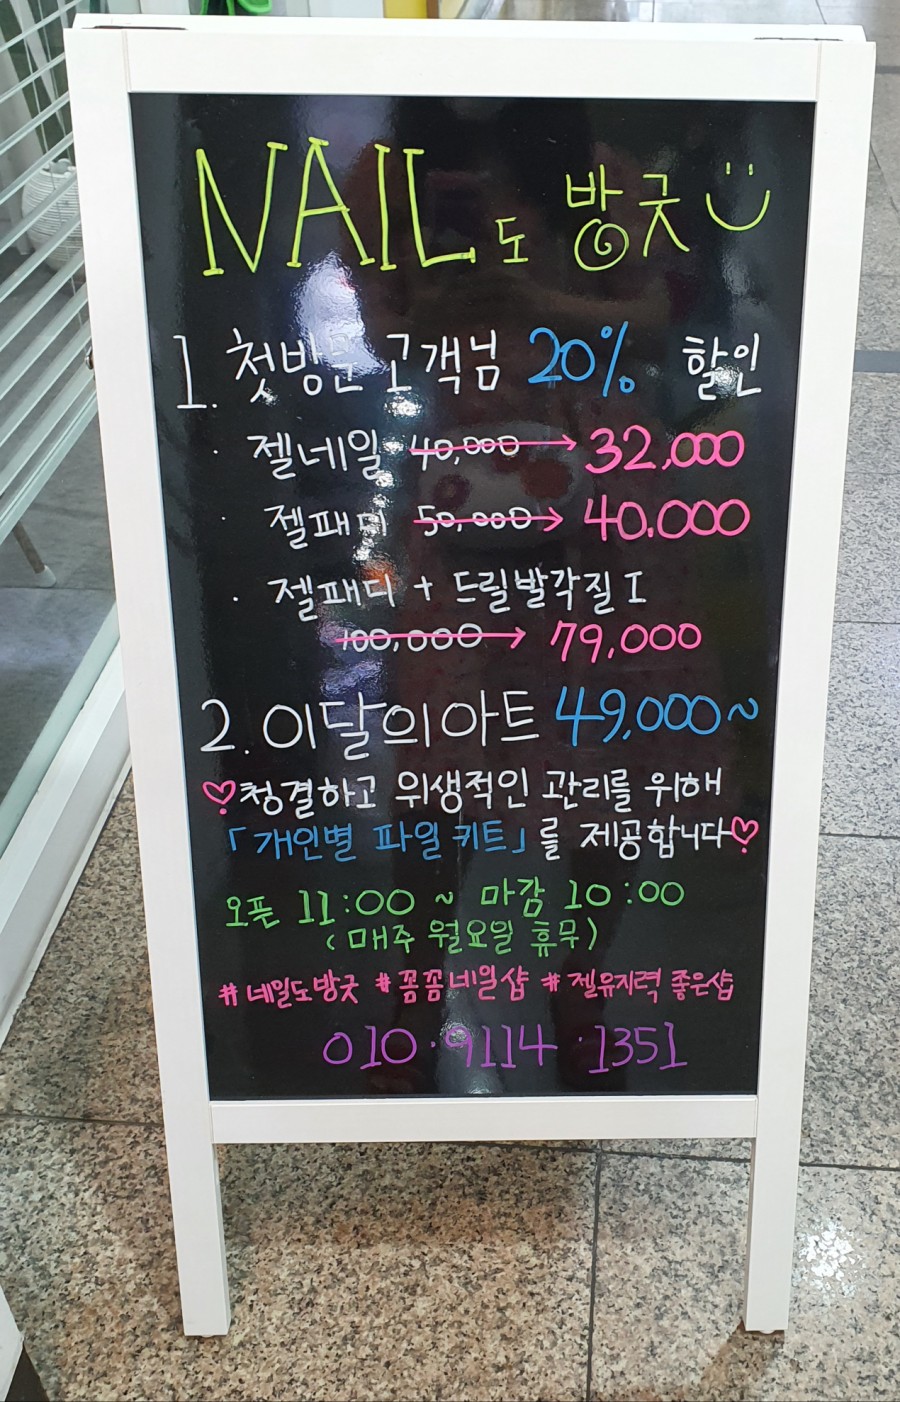 NAIL도 방긋
1. 첫방문 고객님 20% 할인
· 젤네일 40,000 → 32,000
· 젤패디 50,000 → 40,000
· 젤패디 + 드릴발각질 I
100,000 → 79,000
2. 이달의아트 49,000~
♡청결하고 위생적인 관리를 위해
「개인별 파일키트」를 제공합니다♡
오픈 11:00 ~ 마감 10:00
(매주 월요일 휴무)
#네일도방긋 #꼼꼼네일샵 #젤유지력 좋은샵
010·9114·1351